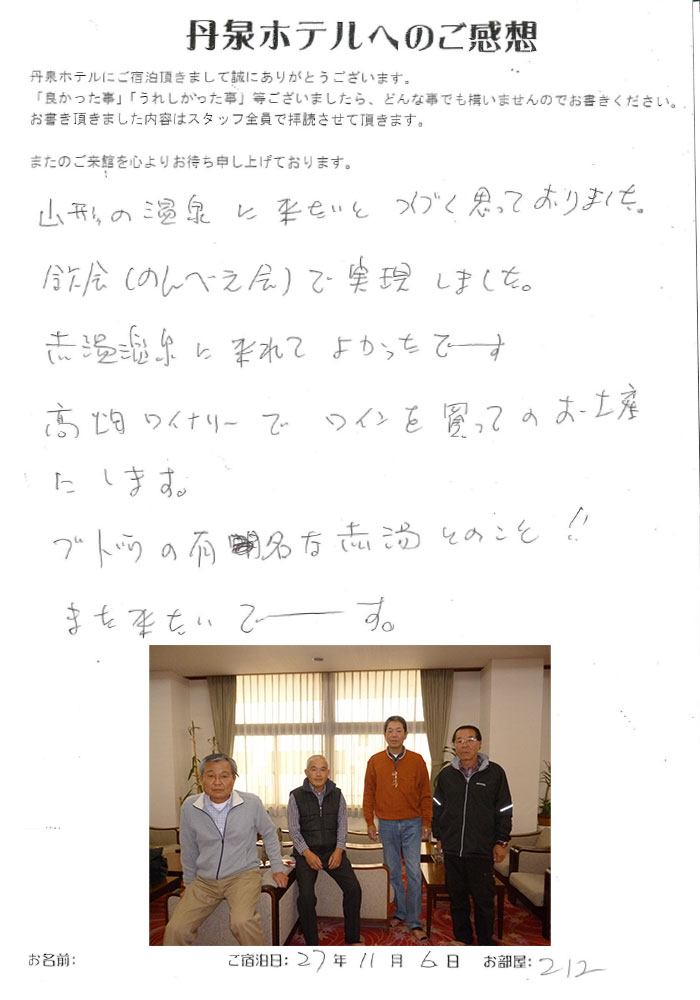 丹泉ホテルへのご感想
丹泉ホテルにご宿泊頂きまして誠にありがとうございます。
「良かった事」「うれしかった事」等ございましたら、どんな事でも構いませんのでお書きください。
お書き頂きました内容はスタッフ全員で拝読させて頂きます。
またのご来館を心よりお待ち申し上げております。
山形の温泉に来たいとつくづく思っておりました。
飲会(のんべえ会)で実現しました。
赤湯温泉に来れてよかったでーす
高畑ワイナリーでワインを買ってのお土産
にします。
ブドウの有名な赤湯そのこと!!
また来たいでーーす。
お名前: ご宿泊日: 27年11月6日 お部屋: 212